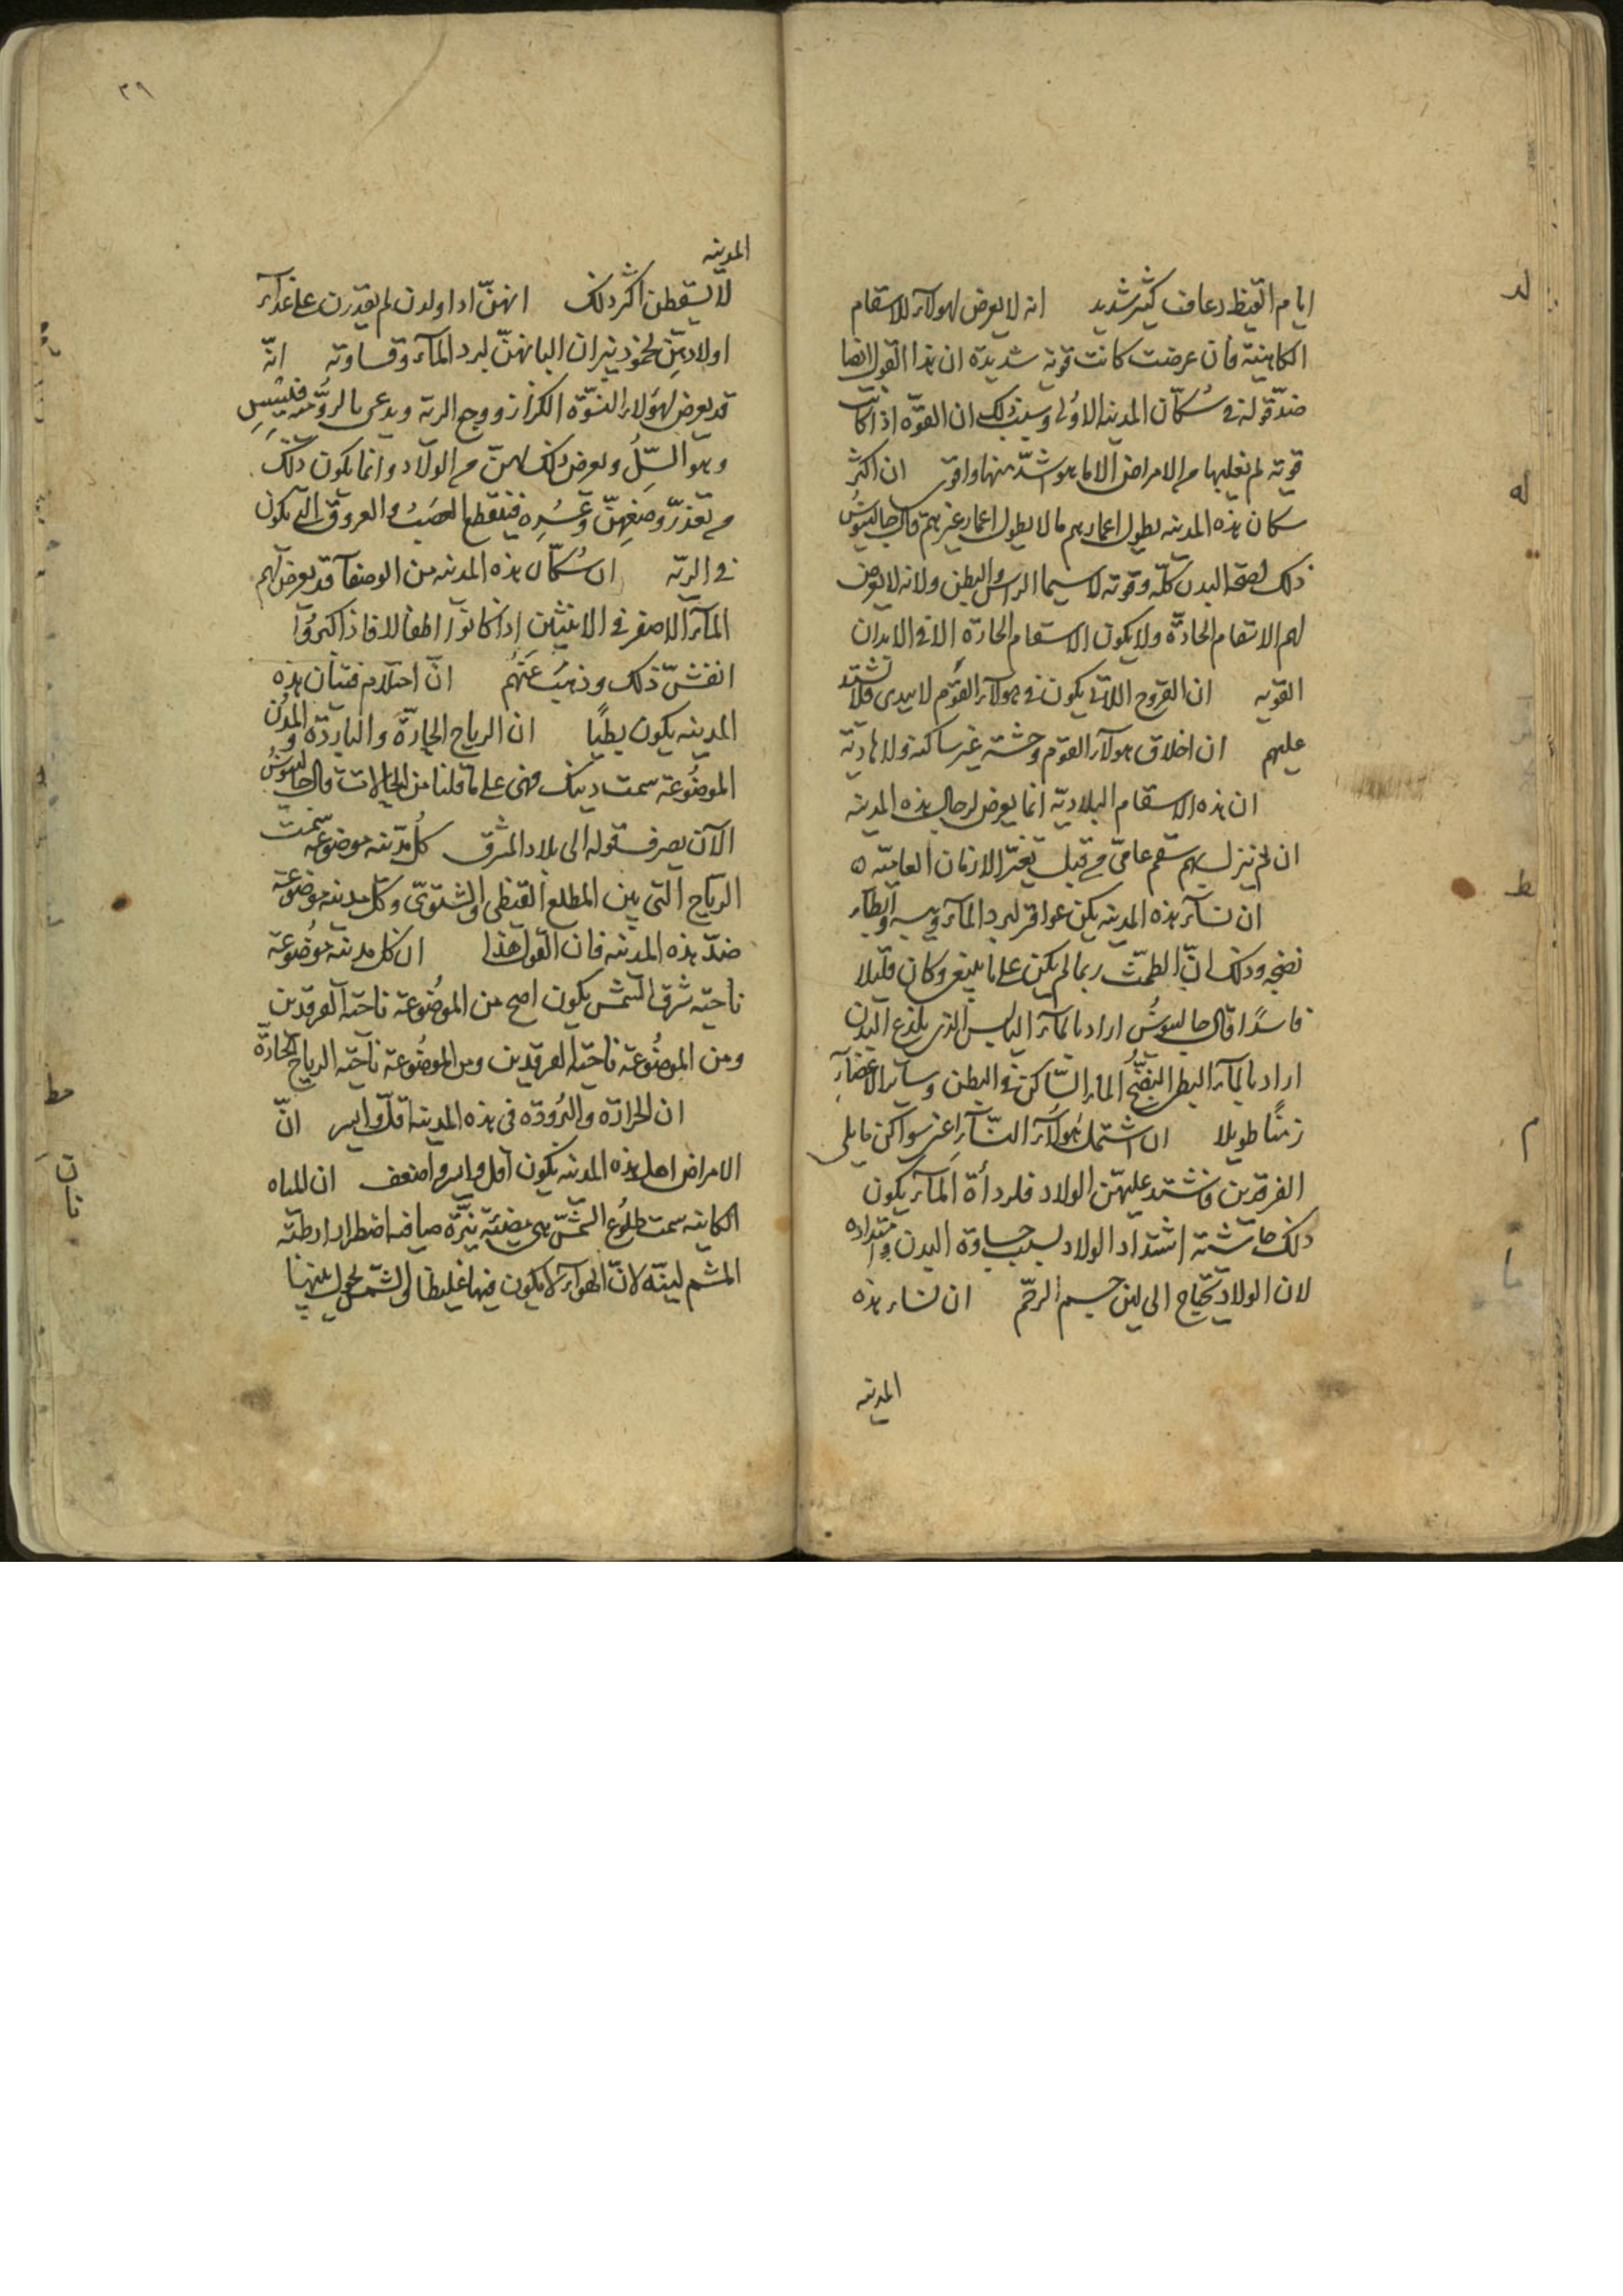 لد
ايام القيظ رعاف كثير شديد انه لا يعرض لهولاء الاسقام
الكاهنية فان عرضت كانت قوية شديدة ان هذا القول ايضا
ضد قوله في سكان المدينة الاولى وسبب ذلك ان القوة اذا كانت
له
قوية لم يغلبها من الامراض الا ما هو اشد منها واقوى ان اكثر
سكان هذه المدينه يطول اعمارهم ما لا يطول اعمار غيرهم قال جالينوس
ذلك لصحة البدن كله وقوته لا سيما الراس والبطن ولانه لا يعرض
لهم الاسقام الحادة ولا يكون الاسقام الحادة الا في الابدان
القويه ان القروح اللاتي يكون في هولاء القوم لا يبدى فلا تشتد
عليهم ان اخلاق هولاء القوم وحشة غير ساكنة ولا هادية
ان هذه الاسقام البلادية انما يعرض لرجال هذه المدينه
ان لم ينزل بهم سقم عامى من قبل تغير الازمان العامية ه
ط
ان نساء هذه المدينه يكن عواقر لبرد الماء ويبسه وابطاء
نضجه وذلك ان الطمث ربما لم يكن على ما ينبغى وكان قليلا
فاسدا قال جالينوس اراد بالماء اليابس الذى يلذع البدن
اراد بالماء البطى النضج الماء الساكن في البطن وساير الاعضاء
م
زمنا طويلا ان اشتمل هولاء النساء غير سواكن ما يلى
الفرقدين وتشتد عليهن الولاد فلرداة الماء يكون
ذلك اشتداد الولاد لسبب جساوة البدن وامتداده
ما
لان الولاد يحتاج الى لين جسم الرحم ان نساء هذه
المدينه
٣٩
المدينه
لا يسقطن اكثر ذلك انهن اذا ولدن لم يقدرن على غذاء
اولادهن لخمود نيران البانهن لبرد الماء وقساوته انه
قد يعرض لهولاء النسوة الكزاز ووجع الرية ويدعى بالرومية
وهو السل ويعرض ذلك لهن من الولاد وانما يكون ذلك
من تعذر وضعهن وعسره فينقطع العصب والعروق التى يكون
في الرية ان سكان هذه المدينه من الوصفاء قد يعرض لهم
الماء الاصفر في الانثيين اذا كانوا اطفالا فاذا كبروا
انفش ذلك وذهب عنهم ان احتلام فتيان هذه
المدينه يكون بطيا ان الرياح الحارة والباردة والمدن
الموضوعة سمت ذينك فهى على ما قلنا من الحالات قال جالينوس
الآن يصرف قوله الى بلاد المشرق كل مدينه موضوعه سمت
الرياح التى بين المطلع القيظى والشتوى وكل مدينه موضوعة
ضد هذه المدينه فان القول هذا ان كل مدينة موضوعة
ناحية شرق الشمس يكون اصح من الموضوعة ناحية الفرقدين
ومن الموضوعة ناحية الفرقدين ومن الموضوعة ناحية الرياح الحارة
مط
ان الحرارة والبرودة في هذه المدينه اقل وايسر ان
الامراض اهل هذه المدينه يكون اقل وايسر واضعف ان المياه
الكاينه سمت طلوع الشمس هى مضيئة نيرة صافيه اضطرارا رطبة
المشم لينة لان الهواء لا يكون فيها غليظا والشمس تحول بينها